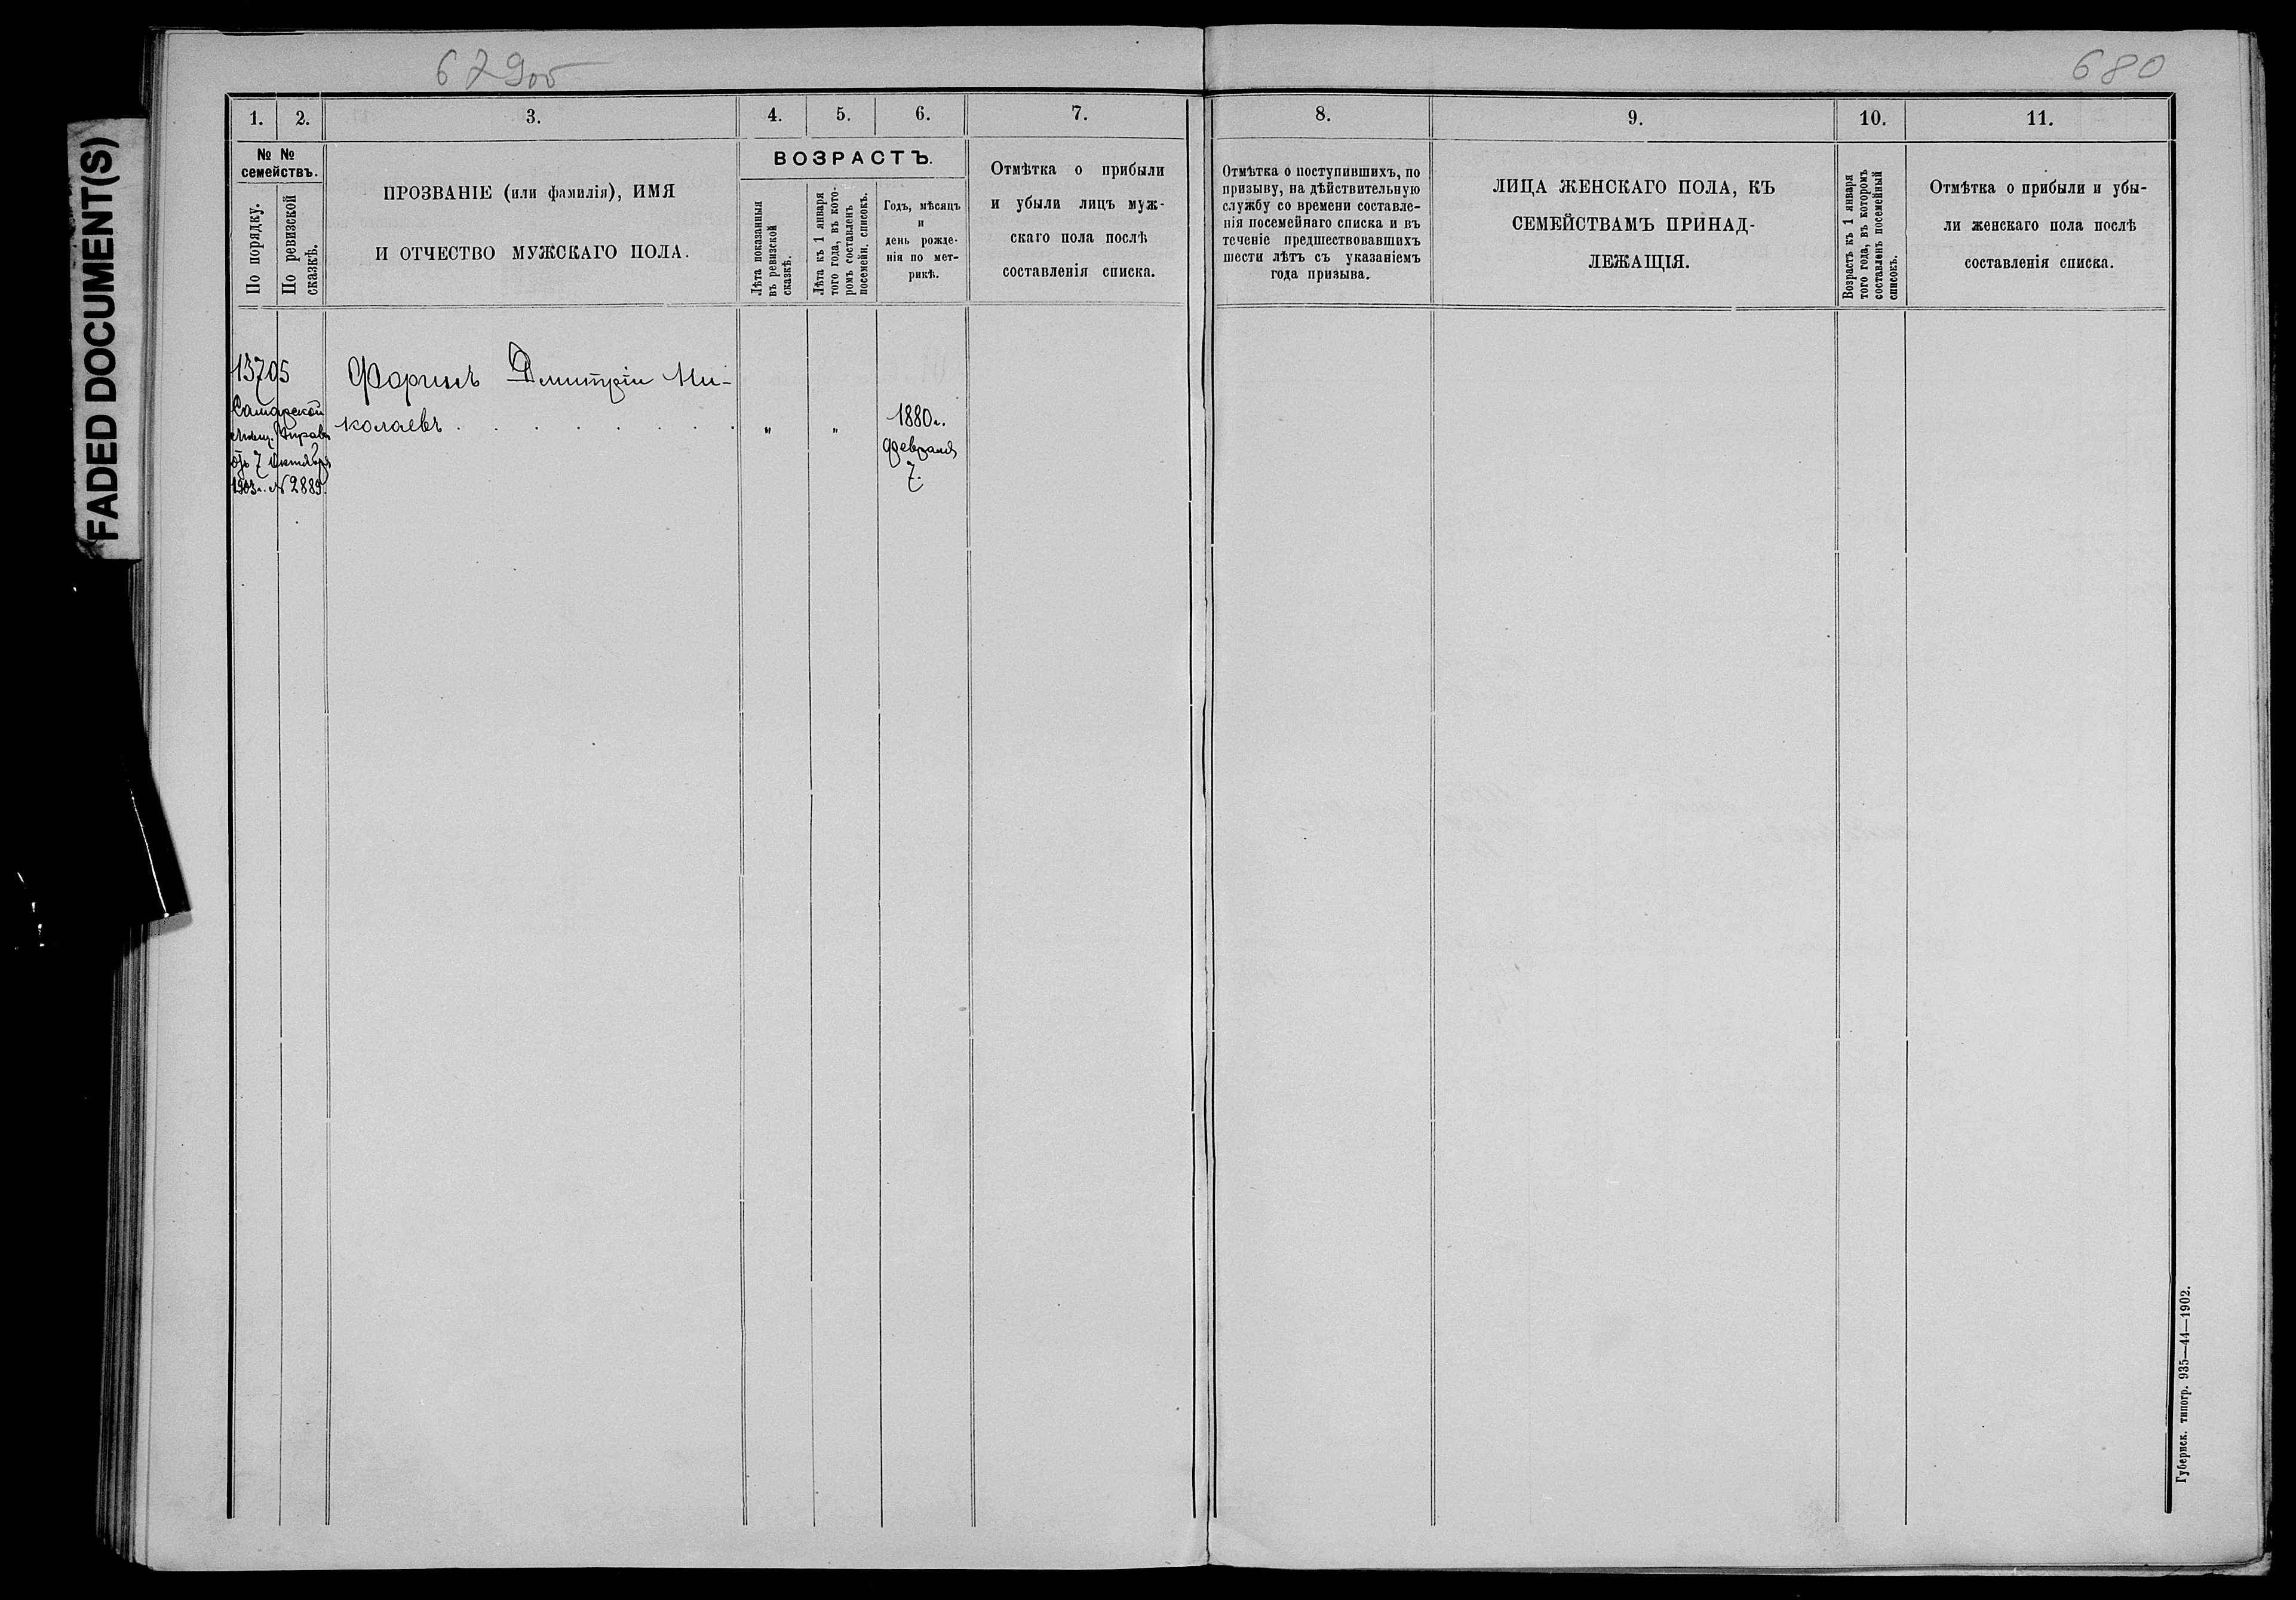 679об
680
FADED DOCUMENT(S)
1. 2. 3. 4. 5. 6. 7. 8. 9. 10. 11.
№ №
семействъ.
По порядку.
По ревизской
сказкѣ.
ПРОЗВАНІЕ (или фамилія), ИМЯ
И ОТЧЕСТВО МУЖСКАГО ПОЛА.
ВОЗРАСТЪ.
Лѣта показанныя
въ ревизской
сказкѣ.
Лѣта къ 1 января
того года, въ кото-
ромъ составленъ
посемейн. списокъ.
Годъ, мѣсяцъ
и
день рожде-
нія по мет-
рикѣ.
Отмѣтка о прибыли
и убыли лицъ муж-
скаго пола послѣ
составленія списка.
Отмѣтка о поступившихъ, по
призыву, на дѣйствительную
службу со времени составле-
нія посемейнаго списка и въ
теченіе предшествовавшихъ
шести лѣтъ съ указаніемъ
года призыва.
ЛИЦА ЖЕНСКАГО ПОЛА, КЪ
СЕМЕЙСТВАМЪ ПРИНАД-
ЛЕЖАЩІЯ.
Возрастъ къ 1 января
того года, въ которомъ
составленъ посемейный
списокъ.
Отмѣтка о прибыли и убы-
ли женскаго пола послѣ
составленія списка.
13705
Самарской
мѣщ. Управы
отъ 7 Октября
1903г. № 2889.
Форинъ Дмитрій Ни-
колаевъ . . . . . . . „ „
1880г.
Февраля
7.
Губернск. типогр. 935—44—1902.